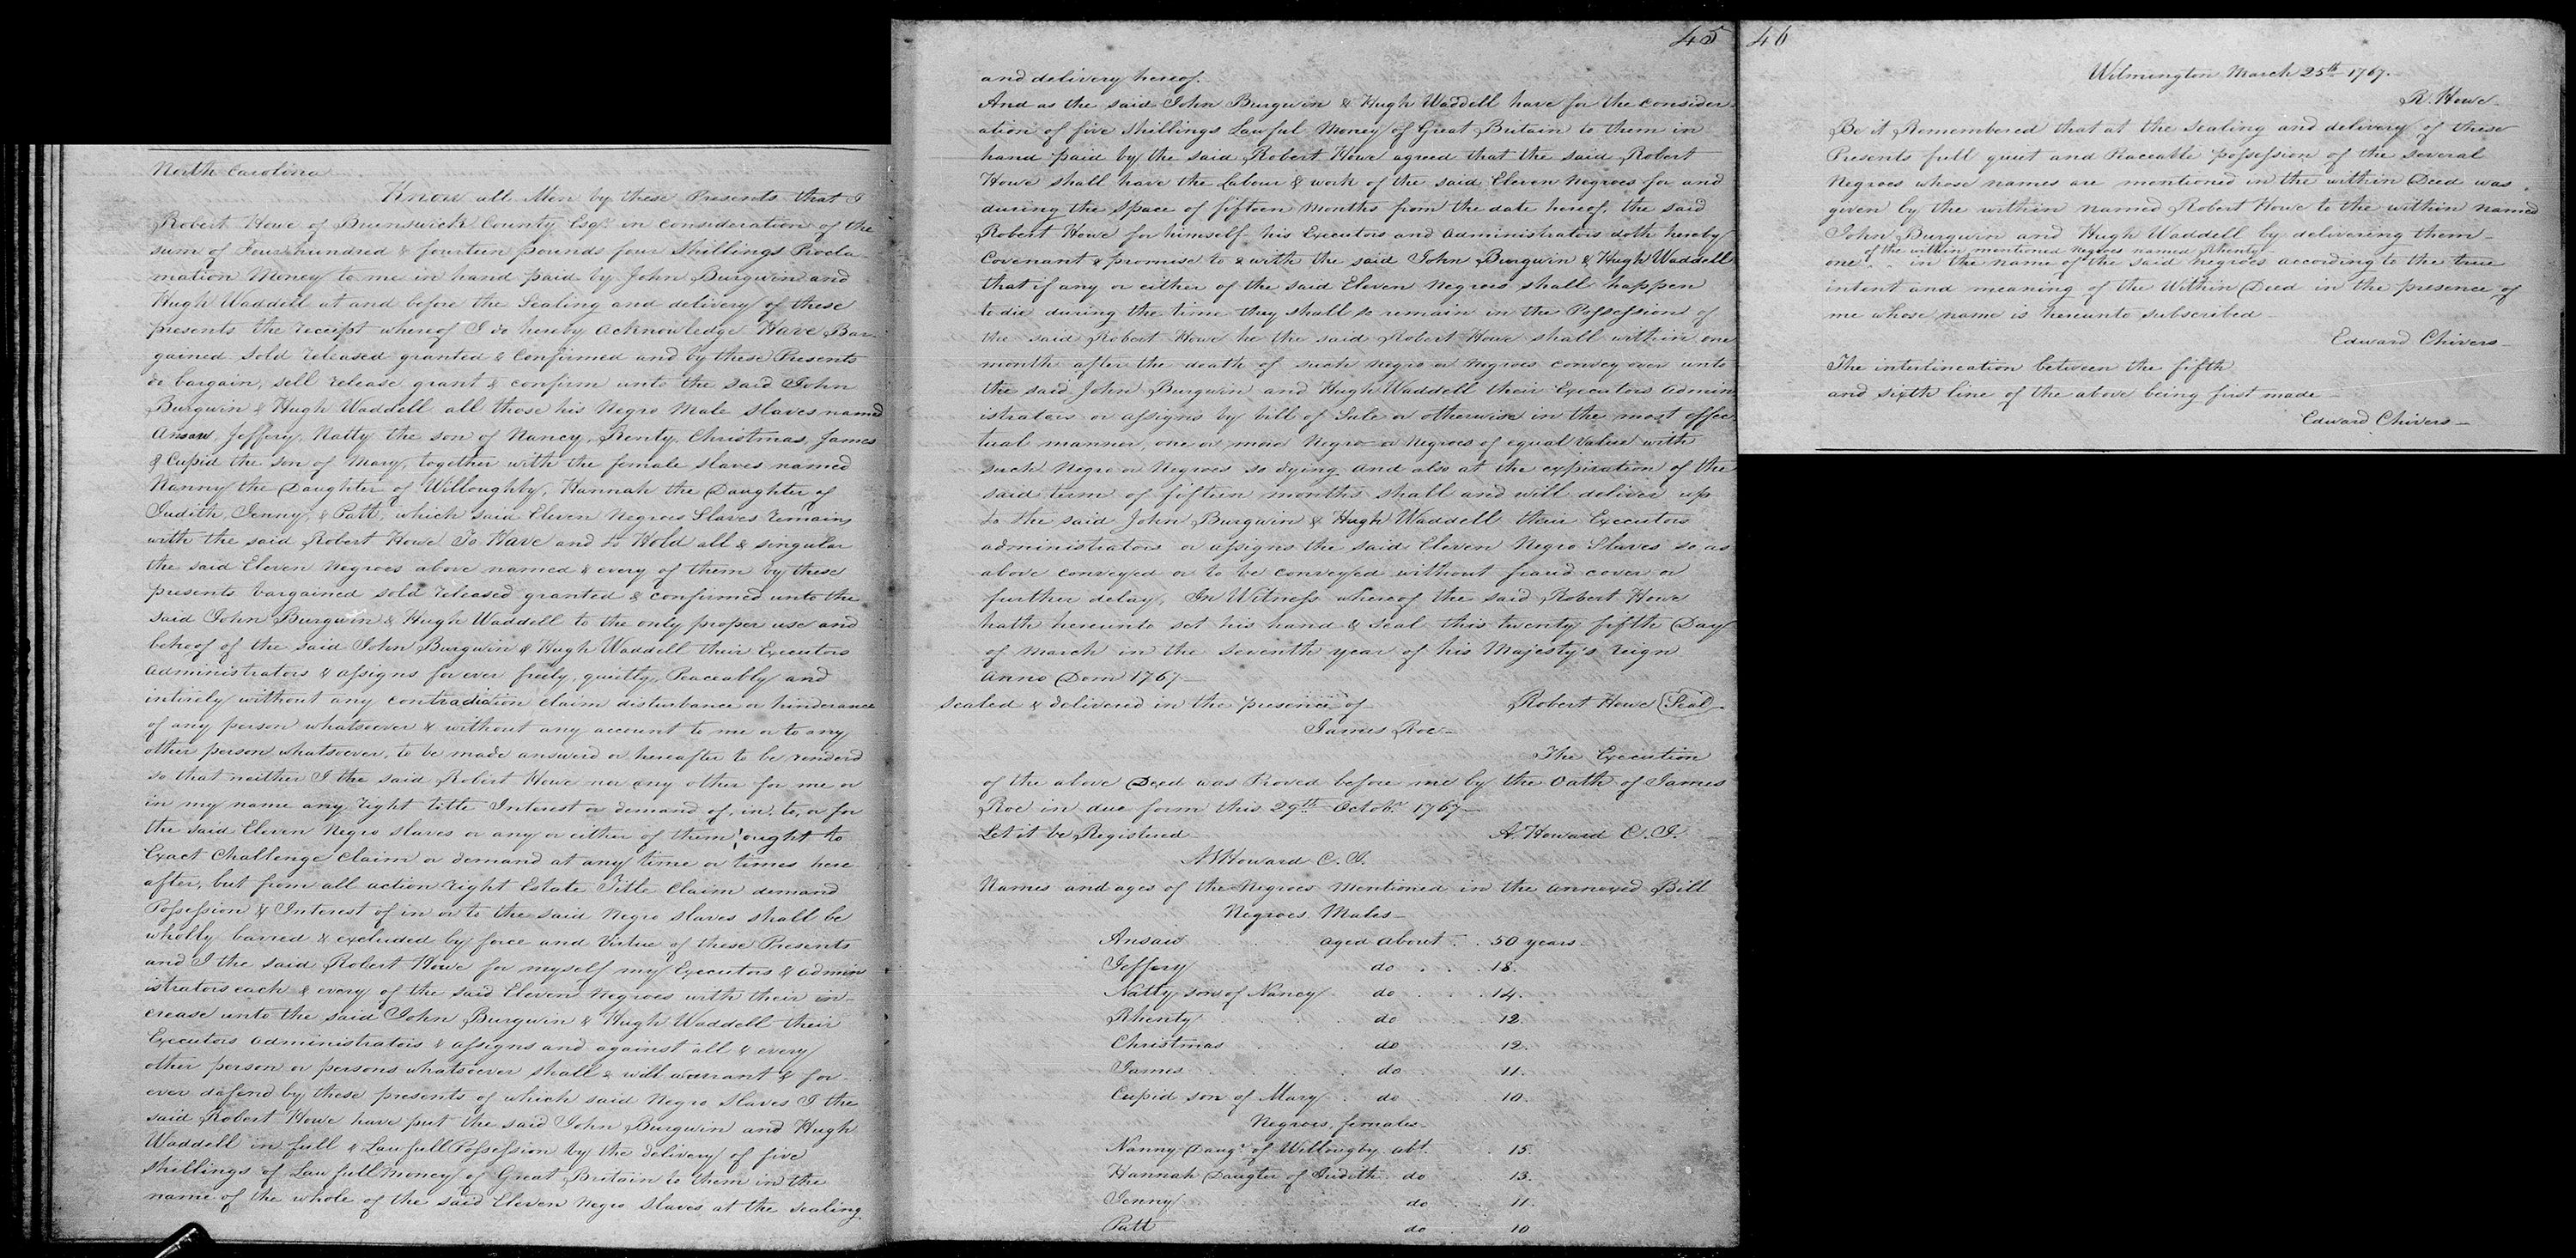 North Carolina
Know all Men by these Presents that I
Robert Howe of Brunswick County Esqr. in consideration of the
sum of Four hundred & fourteen pounds four Shillings Procla-
mation Money to me in hand paid by John Burgwin and
Hugh Waddell at and before the Sealing and delivery of these
presents the receipt whereof I do hereby acknowledge Have Bar-
gained Sold released granted & Confirmed and by these Presents
do bargain, sell release grant & confirm unto the said John
Burgwin & Hugh Waddell all those his Negro Male Slaves named
Ansaw, Jeffery, Natty the son of Nancy, Renty, Christmas, James
& Cupid the son of Mary, together with the female slaves named
Nanny the Daughter of Willoughby, Hannah the Daughter of
Judith, Jenny, & Patt, which said Eleven Negroes Slaves remains
with the said Robert Howe To Have and to Hold all & singular
the said Eleven Negroes above named & every of them by these
presents bargained sold released granted & confirmed unto the
said John Burgwin & Hugh Waddell to the only proper use and
behoof of the said John Burgwin & Hugh Waddell their Executors
administrators & assigns for ever freely, quietly, Peaceably and
intirely without any contradiction claim disturbance or hinderance
of any person whatsoever & without any account to me or to any
other person whatsoever, to be made answerd or hereafter to be renderd
so that neither I the said Robert Howe nor any other for me or
in my name any right title Interest or demand of, in, to, or for
the said Eleven Negro slaves or any or either of them, ought to
Exact Challenge Claim or demand at any time or times here
after, but from all action right Estate Title Claim demand
Possession & Interest of in or to the said Negro slaves shall be
wholly barred & excluded by force and Virtue of these Presents
and I the said Robert Howe for myself my Executors & admin
istrators each & every of the said Eleven Negroes with their in-
crease unto the said John Burgwin & Hugh Waddell their
Executors administrators & assigns and against all & every
other person or persons whatsoever shall & will warrant & for-
ever defend by these presents of which said Negro Slaves I the
said Robert Howe have put the said John Burgwin and Hugh
Waddell in full & Lawfull Possession by the delivery of five
shillings of Law full money of Great Britain to them in the
name of the whole of the said Eleven Negro Slaves at the sealing
45
and delivery hereof.
And as the said John Burgwin & Hugh Waddell have for the consider-
ation of five shillings Lawful Money of Great Britain to them in
hand paid by the said Robert Howe agreed that the said Robert
Howe shall have the Labour & work of the said Eleven Negroes for and
during the Space of fifteen Months from the date hereof. the said
Robert Howe for himself his Executors and Administrators doth hereby
Covenant & promise to & with the said John Burgwin & Hugh Waddell
that if any or either of the said Eleven Negroes shall happen
to die during the time they shall so remain in the Possession of
the said Robert Howe he the said Robert Howe shall within one
month after the death of such Negro or Negroes convey over unto
the said John Burgwin and Hugh Waddell their Executors admin
istrators or assigns by bill of Sale or otherwise in the most effec-
tual manner, one or more Negro or Negroes of equal Value with
such Negro or Negroes so dying and also at the expiration of the
said term of fifteen months shall and will deliver up
to the said John Burgwin & Hugh Waddell their Executors
administrators or assigns the said Eleven Negro Slaves so as
above conveyed or to be conveyed without fraud cover or
further delay, In Witness whereof the said Robert Howe
hath hereunto set his hand & Seal this twenty fifth Day
of March in the Seventh year of his Majesty's reign
Anno Dom 1767
Sealed & delivered in the presence of Robert Howe (Seal)
James Roe
The Execution
of the above Deed was Proved before me by the Oath of James
Roe in due form this 29th Octobr. 1767
Let it be Registered A. Howard C. J.
M Howard C. J.
Names and ages of the Negroes Mentioned in the annexed Bill
Negroes Males
Ansaw aged about 50 years
Jeffery do 18.
Natty son of Nancy do 14.
Rhenty do 12.
Christmas do 12.
James do 11.
Cupid son of Mary do 10.
Negroes, females
Nanny Daugr. of Willougby abt. 15.
Hannah Daugter of Judith do 13.
Jenny do 11.
Patt do 10
46
Wilmington March 25th 1767.
R. Howe
Be it Remembered that at the sealing and delivery of these
Presents full quiet and Peaceable possession of the several
Negroes whose names are mentioned in the within Deed was
given by the within named Robert Howe to the within named
John Burgwin and Hugh Waddell by delivering them
of the within mentioned Negroes named Rhenty
one in the name of the said Negroes according to the true
intent and meaning of the Within Deed in the presence of
me whose name is hereunto subscribed
Edward Chivers
The interlineation between the fifth
and sixth line of the above being first made
Edward Chivers